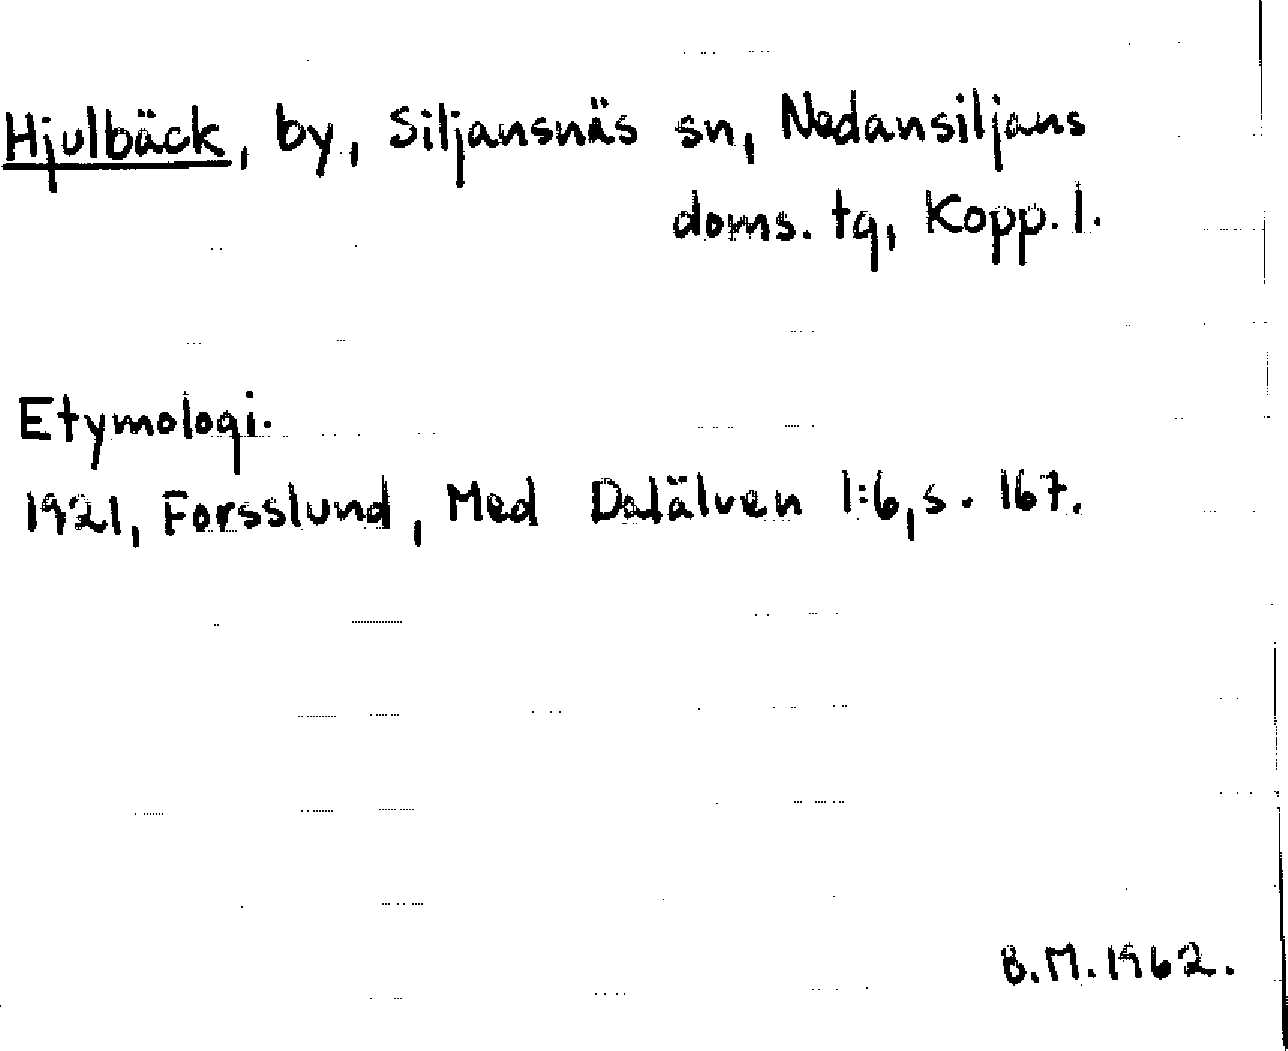 Hjulbäck, by, Siljansnäs sn, Nedansiljans
doms. tg, Kopp. l.
Etymologi.
1921, Forsslund, Med Dalälven 1:6, s. 167.
B.M. 1962.